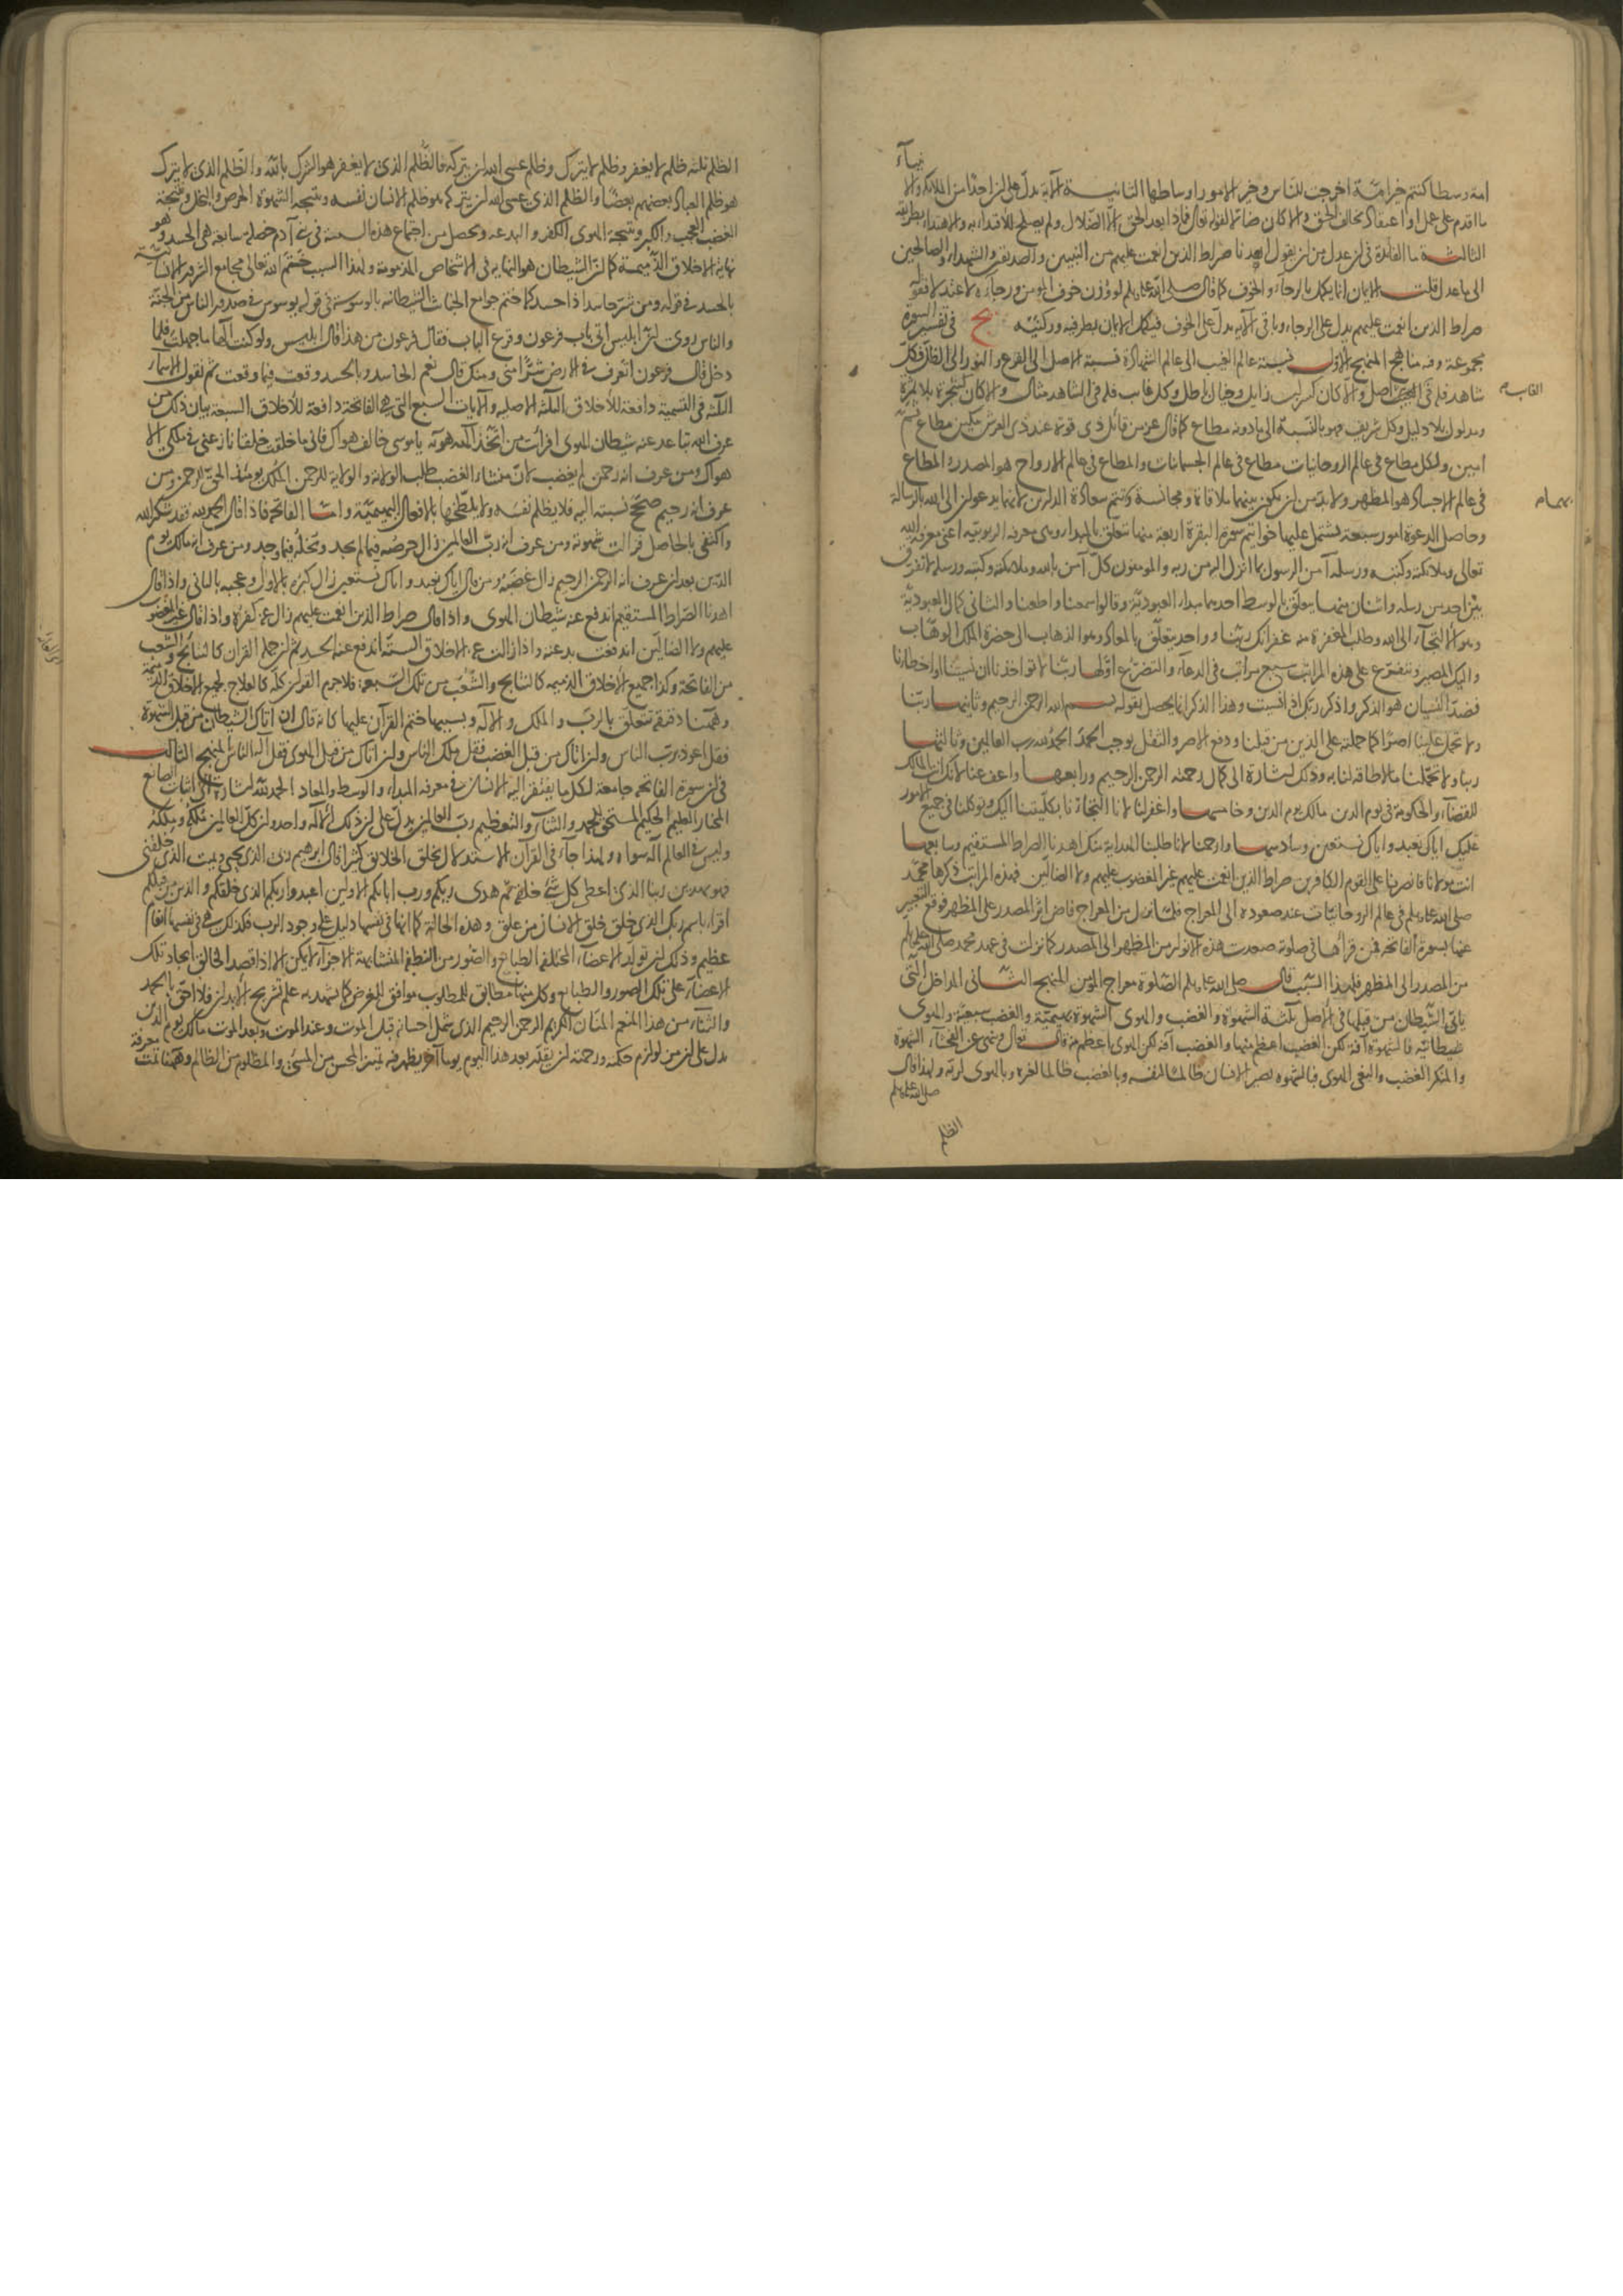 امة وسطا كنتم خير امة اخرجت للناس وخير الامور اوساطها الثانية الآية يدل على ان احدا من الملائكة والانبياء
ما اقدم على عمل او اعتقاد يخالف الحق والا كان ضالا لقوله تعالى فماذا بعد الحق الا الضلال ولم يصلح للاقتداء به والاهتداء بطريقه
الثالثة ما الفائدة في ان عدل من ان يقول اهدنا صراط الذين انعمت عليهم من النبيين والصديقين والشهداء والصالحين
الى ما عدل قلت الايمان انما يكمل بالرجاء والخوف كما قال صلى الله عليه وسلم لو وزن خوف المؤمن ورجاؤه لاعتدلا فقوله
صراط الذين انعمت عليهم يدل على الرجاء وباقي الآية يدل على الخوف فيكمل الايمان بطرفيه وركنيه في تفسير السورة
مجموعة وفيه مناهج المنهج الاول نسبة عالم الغيب الى عالم الشهادة نسبة الاصل الى الفرع والنور الى الظل فكل
شاهد فله في الغايب اصل والا كان كسراب زايل وخيال باطل وكل غايب فله في الشاهد مثال والا كان كشجرة بلا ثمرة
ومدلول بلا دليل وكل شريف فهو بالنسبة الى ما دونه مطاع كما قال عز من قائل ذي قوة عند ذي العرش مكين مطاع ثم
امين ولكل مطاع في عالم الروحانيات مطاع في عالم الجسمانيات والمطاع في عالم الارواح هو المصدر والمطاع
في عالم الاجساد هو المظهر ولا بد من ان يكون بينهما ملاقاة ومجانسة وبهما تتم سعادة الدارين لانهما يدعوان الى الله بالرسالة
وحاصل الدعوة امور سبعة يشتمل عليها خواتيم سورة البقرة اربعة منها تتعلق بالمبدأ وهي معرفة الربوبية اعني معرفة الله
تعالى وملائكته وكتبه ورسله آمن الرسول بما انزل اليه من ربه والمؤمنون كل آمن بالله وملائكته وكتبه ورسله لا نفرق
بين احد من رسله واثنان منها يتعلق بالوسط احدهما مبدأ العبودية وقالوا سمعنا واطعنا والثاني كمال العبودية
وهو الالتجاء الى الله وطلب المغفرة منه غفرانك ربنا وواحد يتعلق بالمعاد وهو الذهاب الى حضرة الملك الوهاب
واليك المصير ويتفرع على هذه المراتب سبع مراتب في الدعاء والتضرع اولها ربنا لا تؤاخذنا ان نسينا او اخطأنا
فضد النسيان هو الذكر واذكر ربك اذا نسيت وهذا الذكر انما يحصل بقوله بسم الله الرحمن الرحيم وثانيها ربنا
ولا تحمل علينا اصرا كما حملته على الذين من قبلنا ودفع الاصر والثقل يوجب الحمد الحمد لله رب العالمين وثالثها
ربنا ولا تحملنا ما لا طاقة لنا به وذلك اشارة الى كمال رحمته الرحمن الرحيم ورابعها واعف عنا لانك انت المالك
للقضاء والحكومة في يوم الدين مالك يوم الدين وخامسها واغفر لنا لانا التجأنا بكليتنا اليك وتوكلنا في جميع الامور
عليك اياك نعبد واياك نستعين وسادسها وارحمنا لانا طلبنا الهداية منك اهدنا الصراط المستقيم وسابعها
انت مولانا فانصرنا على القوم الكافرين صراط الذين انعمت عليهم غير المغضوب عليهم ولا الضالين فهذه المراتب ذكرها محمد
صلى الله عليه وسلم في عالم الروحانيات عند صعوده الى المعراج فلما نزل من المعراج فاض اثر المصدر على المظهر فوقع التعبير
عنها بسورة الفاتحة فمن قرأها في صلوته صعدت هذه الانوار من المظهر الى المصدر كما نزلت في عهد محمد صلى الله عليه وسلم
من المصدر الى المظهر فلهذا السبب قال صلى الله عليه وسلم الصلوة معراج المؤمن المنهج الثاني المداخل التي
ياتي الشيطان من قبلها في الاصل ثلثة الشهوة والغضب والهوى الشهوة بهيمية والغضب سبعية والهوى
شيطانية فالشهوة آفة لكن الغضب اعظم منها والغضب آفة لكن الهوى اعظم منه قال تعالى وينهى عن الفحشاء الشهوة
والمنكر الغضب والبغي الهوى فبالشهوة يصير الانسان ظالما لنفسه وبالغضب ظالما لغيره وبالهوى لربه ولهذا قال
صلى الله عليه وسلم
الظلم
الظلم ثلثة ظلم لا يغفر وظلم لا يترك وظلم عسى الله ان يتركه فالظلم الذي لا يغفر هو الشرك بالله والظلم الذي لا يترك
هو ظلم العباد بعضهم بعضا والظلم الذي عسى الله ان يتركه هو ظلم الانسان نفسه ونتيجة الشهوة الحرص والبخل ونتيجة
الغضب العجب والكبر ونتيجة الهوى الكفر والبدعة ويحصل من اجتماع هذه الستة في بني آدم خصلة سابعة هي الحسد وهو
نهاية الاخلاق الذميمة كما ان الشيطان هو النهاية في الاشخاص المذمومة ولهذا السبب ختم الله تعالى مجامع الشرور الانسانية
بالحسد في قوله ومن شر حاسد اذا حسد كما ختم جوامع الخبائث الشيطانية بالوسوسة في قوله يوسوس في صدور الناس من الجنة
والناس روي ان ابليس اتى باب فرعون وقرع الباب فقال فرعون من هذا قال ابليس ولو كنت الها ما جهلت فلما
دخل قال فرعون اتعرف في الارض شرا مني ومنك قال نعم الحاسد وبالحسد وقعت فيما وقعت ثم نقول الاسماء
الثلثة في التسمية دافعة للاخلاق الثلثة الاصلية والآيات السبع التي هي الفاتحة دافعة للاخلاق السبعة بيان ذلك من
عرف الله تباعد عنه شيطان الهوى افرأيت من اتخذ الهه هواه يا موسى خالف هواك فاني ما خلقت خلقا نازعني في ملكي الا
هواك ومن عرف انه رحمن لم يغضب لان منشأ الغضب طلب الولاية والولاية للرحمن الملك يومئذ الحق للرحمن ومن
عرف انه رحيم صحح نسبته اليه فلا يظلم نفسه ولا يلطخها بالافعال البهيمية واما الفاتحة فاذا قال الحمد لله فقد شكر الله
واكتفى بالحاصل فزالت شهوته ومن عرف انه رب العالمين زال حرصه فيما لم يجد وبخله فيما وجد ومن عرف انه مالك يوم
الدين بعد ان عرف انه الرحمن الرحيم زال غضبه ومن قال اياك نعبد واياك نستعين زال كبره بالاول وعجبه بالثاني واذا قال
اهدنا الصراط المستقيم اندفع عنه شيطان الهوى واذا قال صراط الذين انعمت عليهم زال عنه كفره واذا قال غير المغضوب
عليهم ولا الضالين اندفعت بدعته واذا زالت عنه الاخلاق الستة اندفع عنه الحسد ثم ان جملة القرآن كالنتائج والشعب
من الفاتحة وكذا جميع الاخلاق الذميمة كالنتائج والشعب من تلك السبعة فلا جرم القرآن كله كالعلاج لجميع الاخلاق الذميمة
وههنا دقيقة تتعلق بالرب والملك والاله وبسببها ختم القرآن عليها كانه قال ان اتاك الشيطان من قبل الشهوة
فقل اعوذ برب الناس وان اتاك من قبل الغضب فقل ملك الناس وان اتاك من قبل الهوى فقل اله الناس المنهج الثالث
في ان سورة الفاتحة جامعة لكل ما يفتقر اليه الانسان في معرفة المبدأ والوسط والمعاد الحمد لله اشارة الى اثبات الصانع
المختار العليم الحكيم المستحق للحمد والثناء والتعظيم رب العالمين يدل على ان ذلك الاله واحد وان كل العالمين ملكه وملكه
وليس في العالم اله سواه ولهذا جاء في القرآن الاستدلال بخلق الخلايق كثيرا قال ابرهيم ربي الذي يحيي ويميت الذي خلقني
فهو يهدين ربنا الذي اعطى كل شئ خلقه ثم هدى ربكم ورب ابائكم الاولين اعبدوا ربكم الذي خلقكم والذين من قبلكم
اقرأ باسم ربك الذي خلق خلق الانسان من علق وهذه الحالة كما انها في نفسها دليل على وجود الرب فكذلك هي في نفسها انعام
عظيم وذلك ان تولد الاعضاء المختلفة الطبائع والصور من النطفة المتشابهة الاجزاء لا يمكن الا اذا قصد الخالق ايجاد تلك
الاعضاء على تلك الصور والطبائع وكل منها مطابق للمطلوب موافق للغرض كما يشهد به علم تشريح الابدان فلا احق بالحمد
والثناء من هذا المنعم المنان الكريم الرحمن الرحيم الذي شمل احسانه قبل الموت وعند الموت وبعد الموت مالك يوم الدين
يدل على ان من لوازم حكمته ورحمته ان يقدر بعد هذا اليوم يوما آخر يظهر فيه تميز المحسن من المسئ والمظلوم من الظالم وههنا تمت معرفة